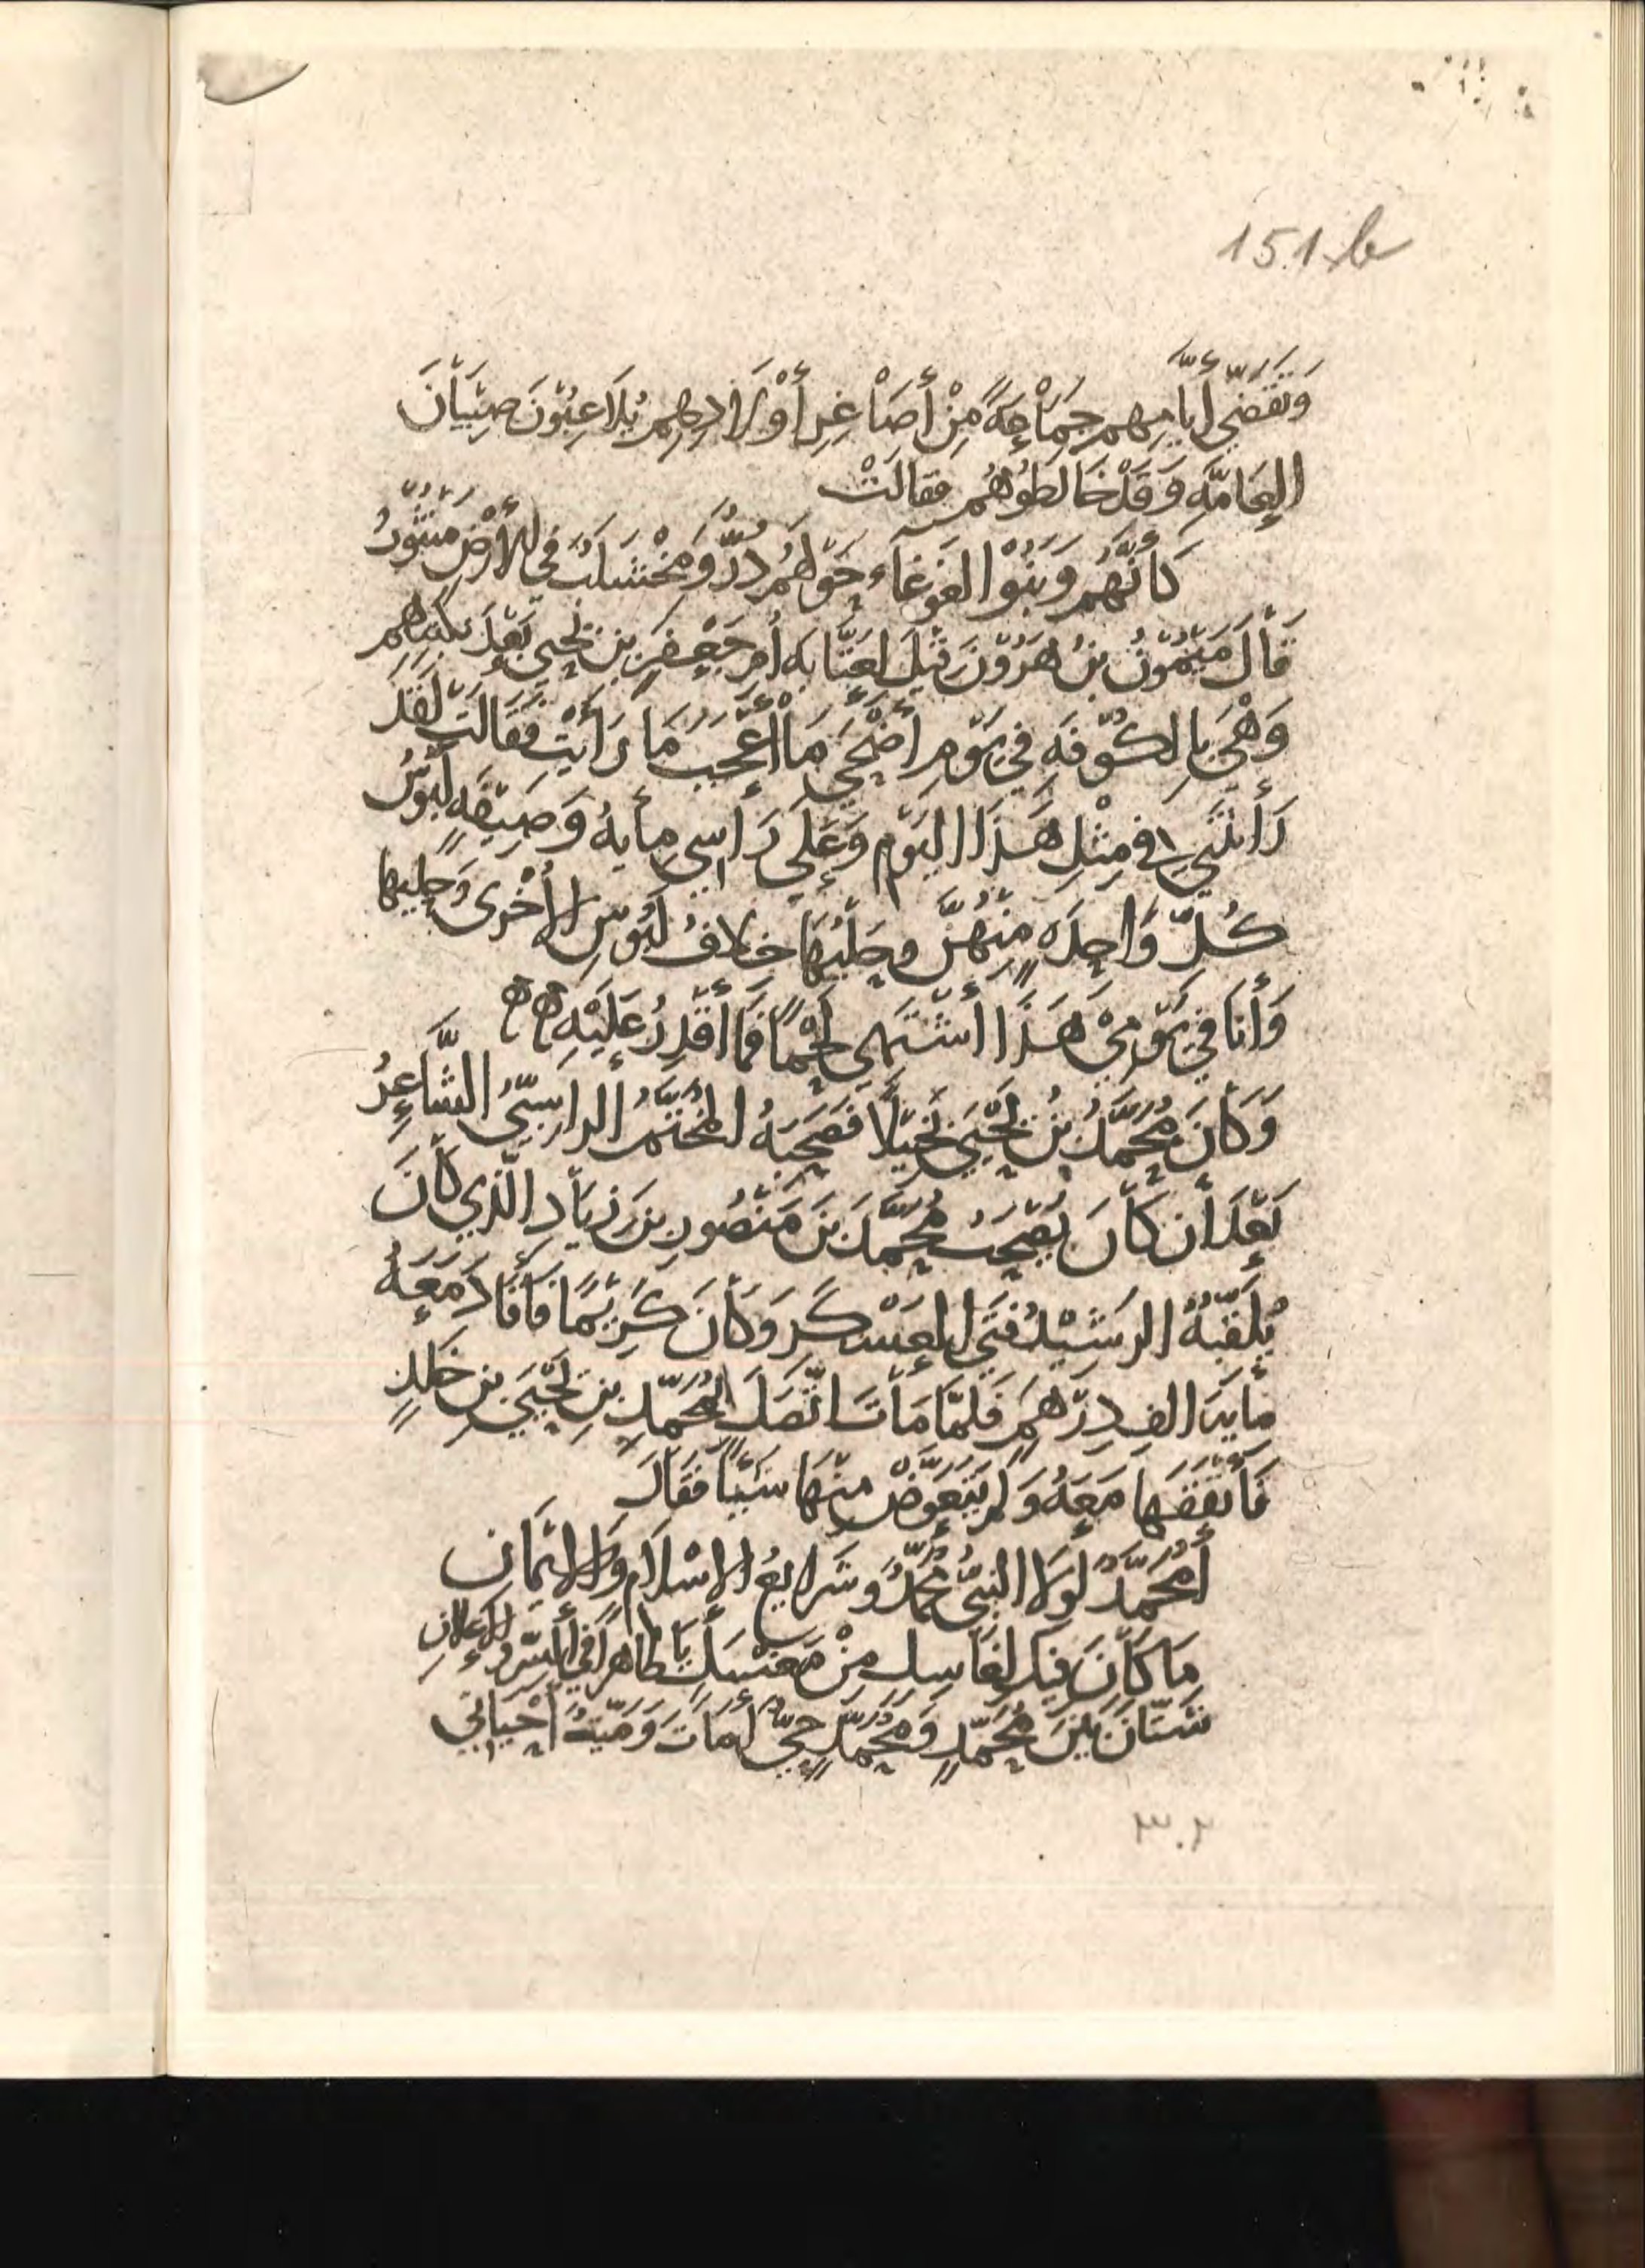 151b
وَتَقَضِّي أَيَّامِهِم جَمَاعَةً مِنْ أَصَاغِرِ أَوْلَادِهِم يُلَاعِبُونَ صِبْيَانَ
العَامَّةِ وَقَدْ خَالَطُوهُم فقالَتْ
كَأَنَّهُم وَبَنُوا الغَوْغَاءِ حَوْلَهُمْ دُرٌّ وَمَخْشَلَبٌ فِي الأَرْضِ مَنْثُورُ
قَالَ مَيْمُونُ بنُ هَرُونَ قِيْلَ لِعَتَّابَه أُم جَعْفَرِ بنِ يَحْيَى بَعْدَ نكبتهم
وَهْيَ بِالكُوْفَةِ فِي يَوْمِ أَضْحَى مَا أَعْجَبُ مَا رَأَيْتِ فَقَالَتْ لَقَدْ
رَأَيْتُنِي في مِثْلِ هَذَا اليَوْمِ وَعَلَى رَأْسِي مِأيةُ وَصِيْفَةٍ لَبُوْسُ
كُلِّ وَاحِدَةٍ مِنْهُنَّ وحَلْيُهَا خِلَافُ لَبُوسِ الأُخْرَى وَحليها
وَأَنَا فِي يَوْمِيْ هَذَا أَشْتَهِي لَحْمًا فَمَا أَقْدِرُ عَلَيْهِ ه ه
وَكَانَ مُحَمَّدُ بْنُ يَحْيَى بَخِيْلًا فَصَحِبَهُ المُخَتَّمُ الراسِبِيُّ الشَّاعِرُ
بَعْدَ أن كَانَ يَصْحَبُ مُحَمَّدَ بنَ مَنْصُورِ بنِ زِيَادِ الَّذِي كَانَ
يُلَقِّبُهُ الرَشِيْدُ فَتَى العَسْكَرِ وَكَانَ كَرِيْمًا فَأَفَادَ مَعَهُ
مأيةَ الفِ دِرْهَمٍ فَلَمَّا مَاتَ اتَّصَلَ بمُحَمَّدِ بنِ يَحْيَى بن خَلدٍ
فَأَنْفَقَهَا مَعَهُ وَلم يَتَعَوَّضْ مِنْهَا شَيْئًا فَقَالَ
أَمُحَمَّدٌ لَولا النبيُّ مُحَمَّدٌ وَشَرايعُ الاسْلَامِ وَالايْمَانِ
مَا كَانَ فِيكَ لِغَاسِلٍ مِنْ مَغْسَلٍ يَا طَاهِرًا فِي السِّرِّ وَالإعْلانِ
شَتَّانَ بَيْنَ مُحَمَّدٍ وَمُحَمَّدٍ حَيٌّ أَمَاتَ وَمَيِّتٌ أَحْيَانِي
٣٠٢